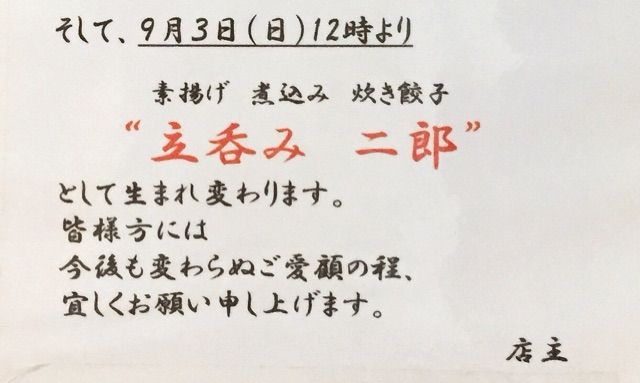 そして、9月3日(日)12時より
素揚げ 煮込み 炊き餃子
“立呑み 二郎”
として生まれ変わります。
皆様方には
今後も変わらぬご愛顧の程、
宜しくお願い申し上げます。
店主